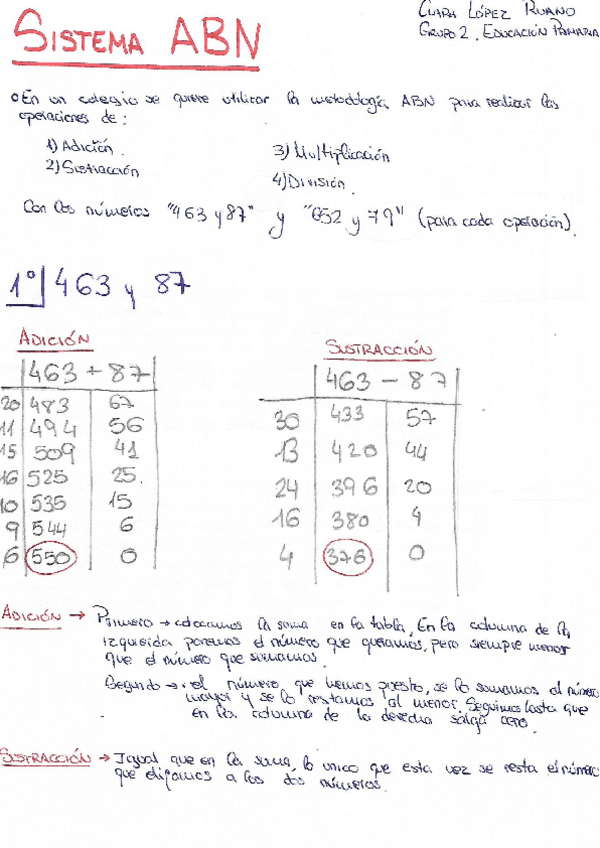 SISTEMA ABN
CLARA LÓPEZ RUANO
GRUPO 2, EDUCACIÓN PRIMARIA
En un colegio se quiere utilizar la metodología ABN para realizar las
operaciones de:
1) Adición.
2) Sustracción
3) Multiplicación
4) División.
Con los números "463 y 87" y "652 y 79" (para cada operación).
1º 463 y 87
ADICIÓN
463 + 87
20 483 67
11 494 56
15 509 41
16 525 25.
10 535 15
9 544 6
6 550 0
SUSTRACCIÓN
463 - 87
30 433 57
13 420 44
24 396 20
16 380 4
4 376 0
ADICIÓN → Primero → colocamos la suma en la tabla, En la columna de la
izquierda ponemos el número que queramos, pero siempre menor
que el número que sumamos.
Segundo → el número que hemos puesto, se lo sumamos al número
mayor y se lo restamos al menor. Seguimos hasta que
en la columna de la derecha salga cero.
SUSTRACCIÓN → Igual que en la suma, lo unico que esta vez se resta el número
que elijamos a los dos números.